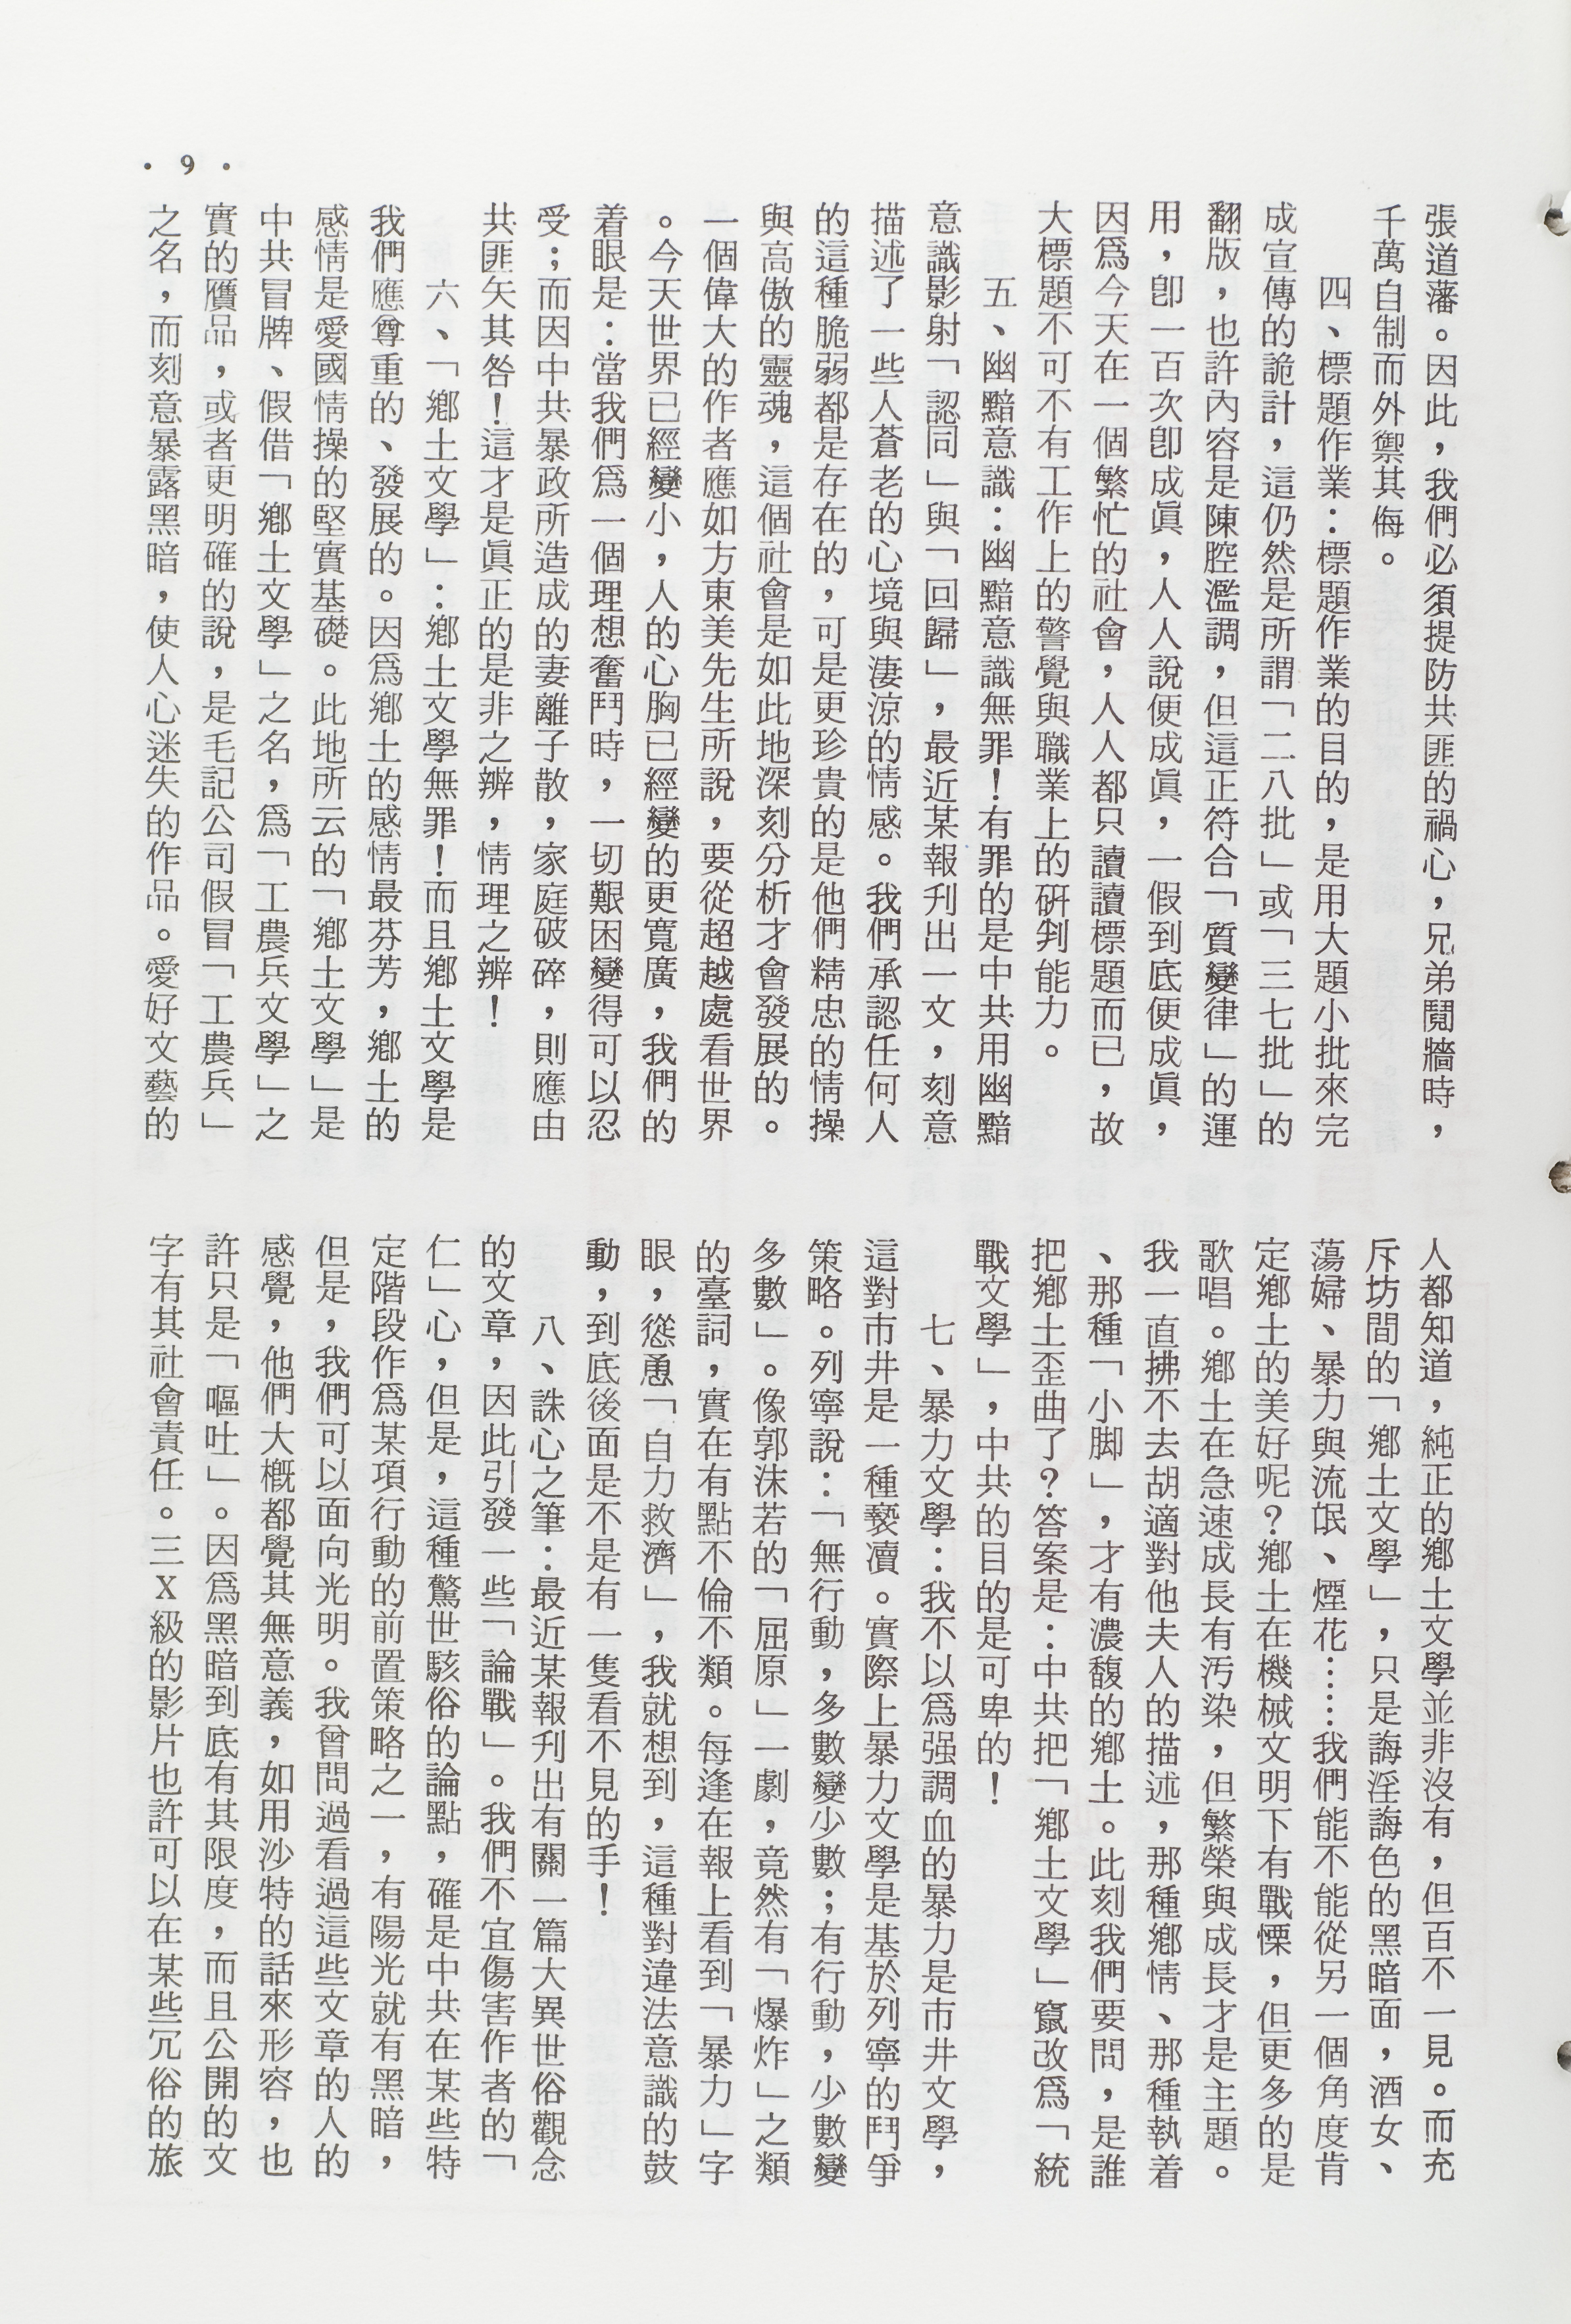 · 9 ·
張道藩。因此，我們必須提防共匪的禍心，兄弟鬩牆時，
千萬自制而外禦其侮。
四、標題作業：標題作業的目的，是用大題小批來完
成宣傳的詭計，這仍然是所謂「二八批」或「三七批」的
翻版，也許內容是陳腔濫調，但這正符合「質變律」的運
用，卽一百次卽成眞，人人說便成眞，一假到底便成眞，
因爲今天在一個繁忙的社會，人人都只讀讀標題而已，故
大標題不可不有工作上的警覺與職業上的硏判能力。
五、幽黯意識：幽黯意識無罪！有罪的是中共用幽黯
意識影射「認同」與「回歸」，最近某報刋出一文，刻意
描述了一些人蒼老的心境與淒涼的情感。我們承認任何人
的這種脆弱都是存在的，可是更珍貴的是他們精忠的情操
與高傲的靈魂，這個社會是如此地深刻分析才會發展的。
一個偉大的作者應如方東美先生所說，要從超越處看世界
。今天世界已經變小，人的心胸已經變的更寬廣，我們的
着眼是：當我們爲一個理想奮鬥時，一切艱困變得可以忍
受；而因中共暴政所造成的妻離子散，家庭破碎，則應由
共匪矢其咎！這才是眞正的是非之辨，情理之辨！
六、「鄕土文學」：鄕土文學無罪！而且鄕土文學是
我們應尊重的、發展的。因爲鄕土的感情最芬芳，鄕土的
感情是愛國情操的堅實基礎。此地所云的「鄕土文學」是
中共冒牌、假借「鄕土文學」之名，爲「工農兵文學」之
實的贋品，或者更明確的說，是毛記公司假冒「工農兵」
之名，而刻意暴露黑暗，使人心迷失的作品。愛好文藝的
人都知道，純正的鄕土文學並非沒有，但百不一見。而充
斥坊間的「鄕土文學」，只是誨淫誨色的黑暗面，酒女、
蕩婦、暴力與流氓、煙花……我們能不能從另一個角度肯
定鄕土的美好呢？鄕土在機械文明下有戰慄，但更多的是
歌唱。鄕土在急速成長有汚染，但繁榮與成長才是主題。
我一直拂不去胡適對他夫人的描述，那種鄕情、那種執着
、那種「小脚」，才有濃馥的鄕土。此刻我們要問，是誰
把鄕土歪曲了？答案是：中共把「鄕土文學」竄改爲「統
戰文學」，中共的目的是可卑的！
七、暴力文學：我不以爲强調血的暴力是市井文學，
這對市井是一種褻凟。實際上暴力文學是基於列寧的鬥爭
策略。列寧說：「無行動，多數變少數；有行動，少數變
多數」。像郭沫若的「屈原」一劇，竟然有「爆炸」之類
的臺詞，實在有點不倫不類。每逢在報上看到「暴力」字
眼，慫恿「自力救濟」，我就想到，這種對違法意識的鼓
動，到底後面是不是有一隻看不見的手！
八、誅心之筆：最近某報刋出有關一篇大異世俗觀念
的文章，因此引發一些「論戰」。我們不宜傷害作者的「
仁」心，但是，這種驚世駭俗的論點，確是中共在某些特
定階段作爲某項行動的前置策略之一，有陽光就有黑暗，
但是，我們可以面向光明。我曾問過看過這些文章的人的
感覺，他們大槪都覺其無意義，如用沙特的話來形容，也
許只是「嘔吐」。因爲黑暗到底有其限度，而且公開的文
字有其社會責任。三Ｘ級的影片也許可以在某些冗俗的旅